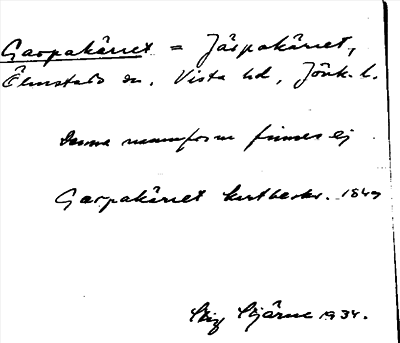 Garpakärret = Järpakärret,
Ölmstads sn, Vista hd, Jönk. l.
Denna namnform finnes ej
Garpakärret kartbeskr. 1849
Stig Stjärne 1934.